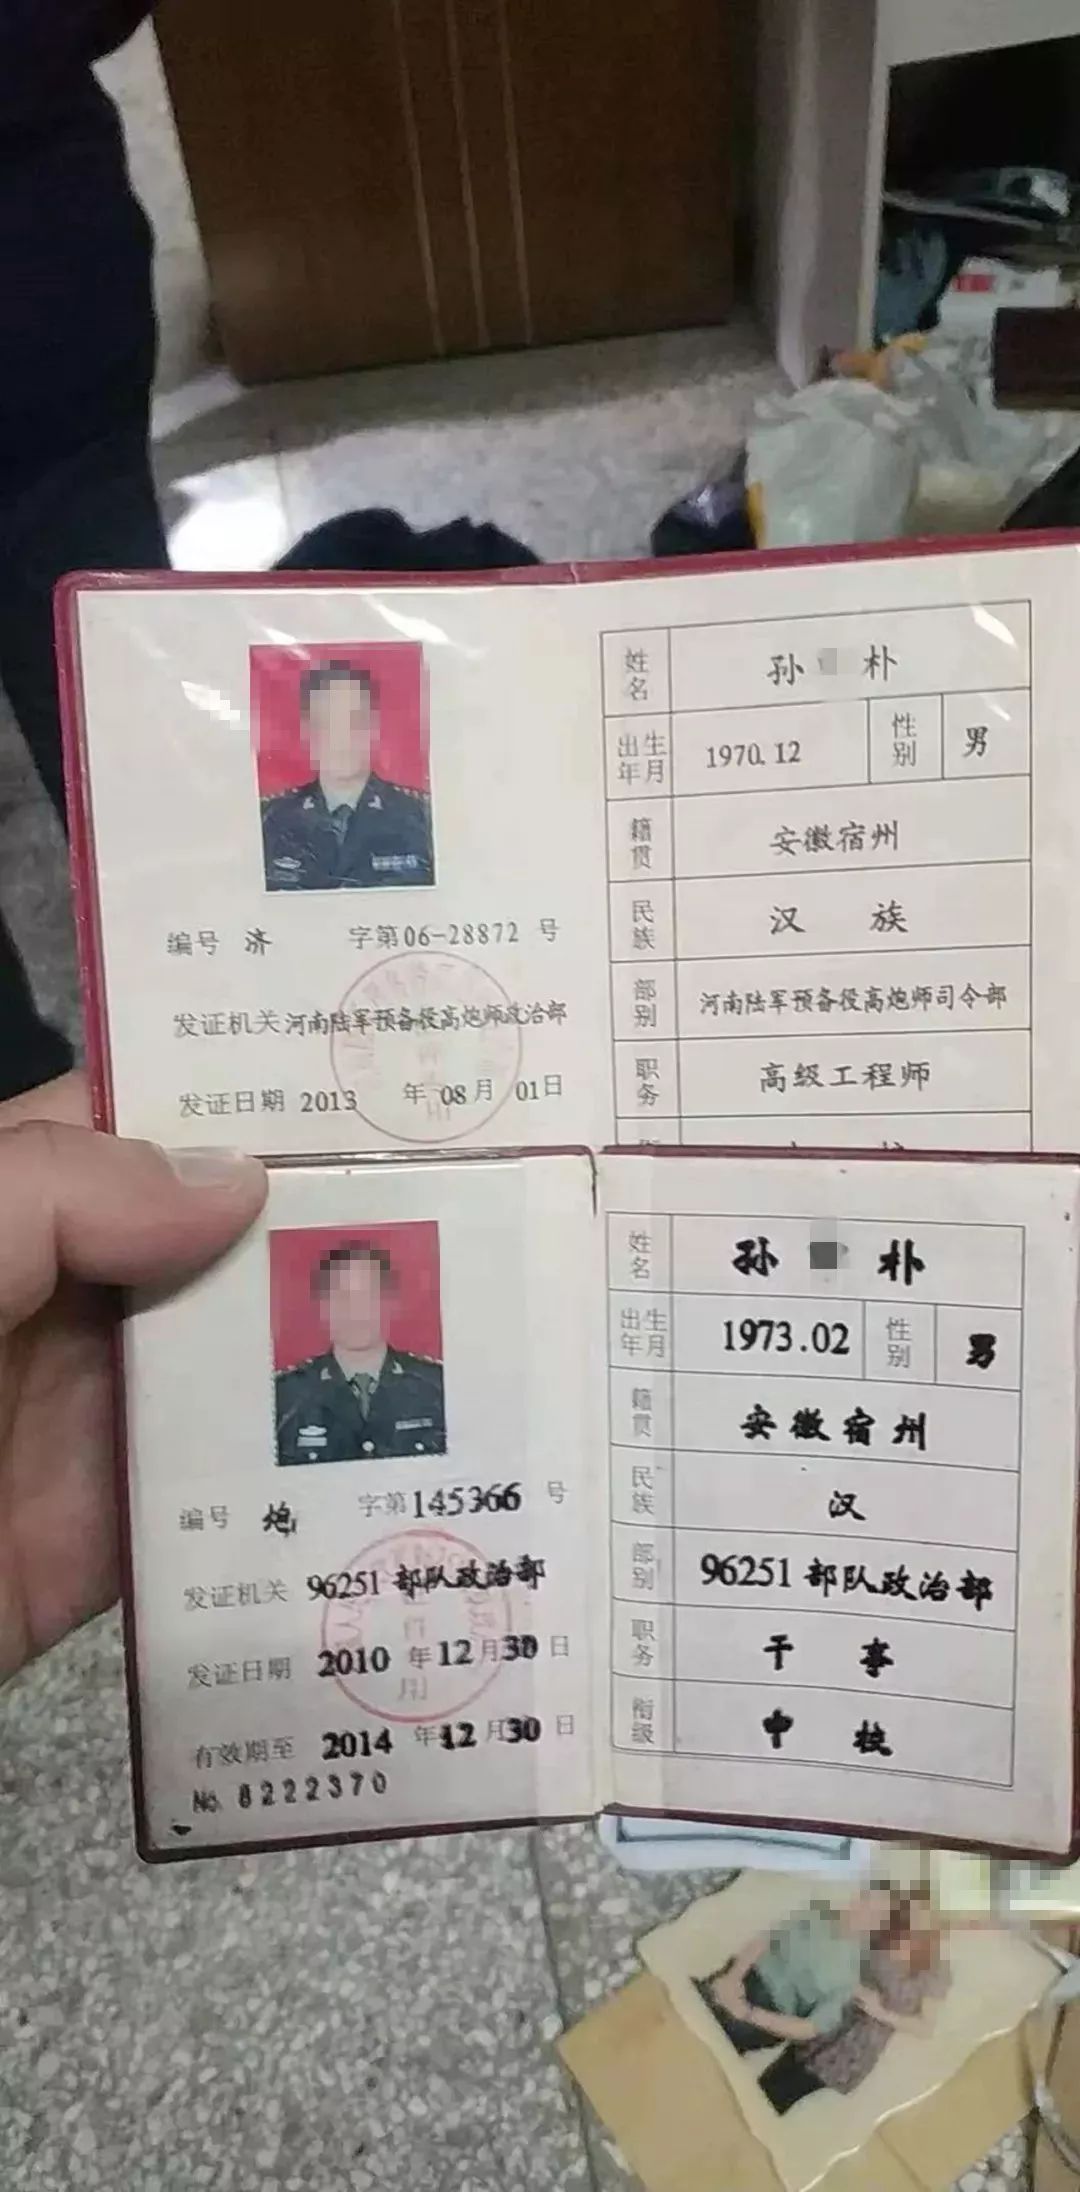 姓名 孙 朴
出生年月 1970.12 性别 男
籍贯 安徽宿州
民族 汉 族
部别 河南陆军预备役高炮师司令部
职务 高级工程师
编号 济 字第06-28872 号
发证机关 河南陆军预备役高炮师政治部
发证日期 2013 年 08 月 01 日
姓名 孙 朴
出生年月 1973.02 性别 男
籍贯 安徽宿州
民族 汉
部别 96251 部队政治部
职务 干 事
衔级 中 校
编号 炮 字第145366 号
发证机关 96251 部队政治部
发证日期 2010 年 12 月 30 日
有效期至 2014 年 12 月 30 日
No. 8222370